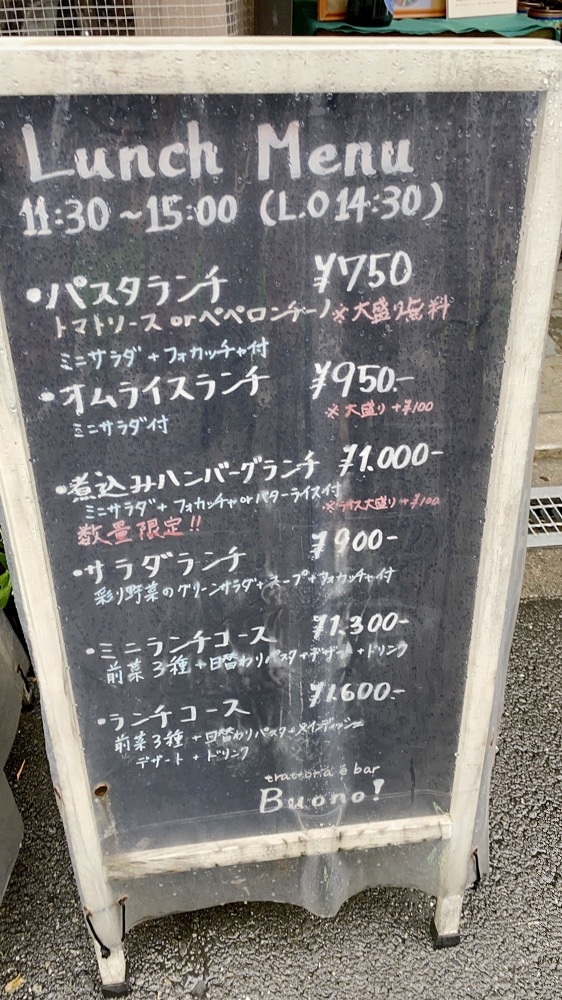 Lunch Menu
11:30～15:00 (L.O 14:30)
・パスタランチ ¥750
トマトソース orペペロンチーノ ※大盛り無料
ミニサラダ + フォカッチャ付
・オムライスランチ ¥950.-
ミニサラダ付 ※大盛り +¥100
・煮込みハンバーグランチ ¥1.000-
ミニサラダ + フォカッチャ or バターライス付
数量限定!! ※ライス大盛り +¥100
・サラダランチ ¥900-
彩り野菜のグリーンサラダ+スープ+フォカッチャ付
・ミニランチコース ¥1.300-
前菜3種 +日替わりパスタ+デザート+ドリンク
・ランチコース ¥1.600-
前菜3種 +日替わりパスタ+メインディッシュ
デザート + ドリンク
trattoria e bar
Buono!